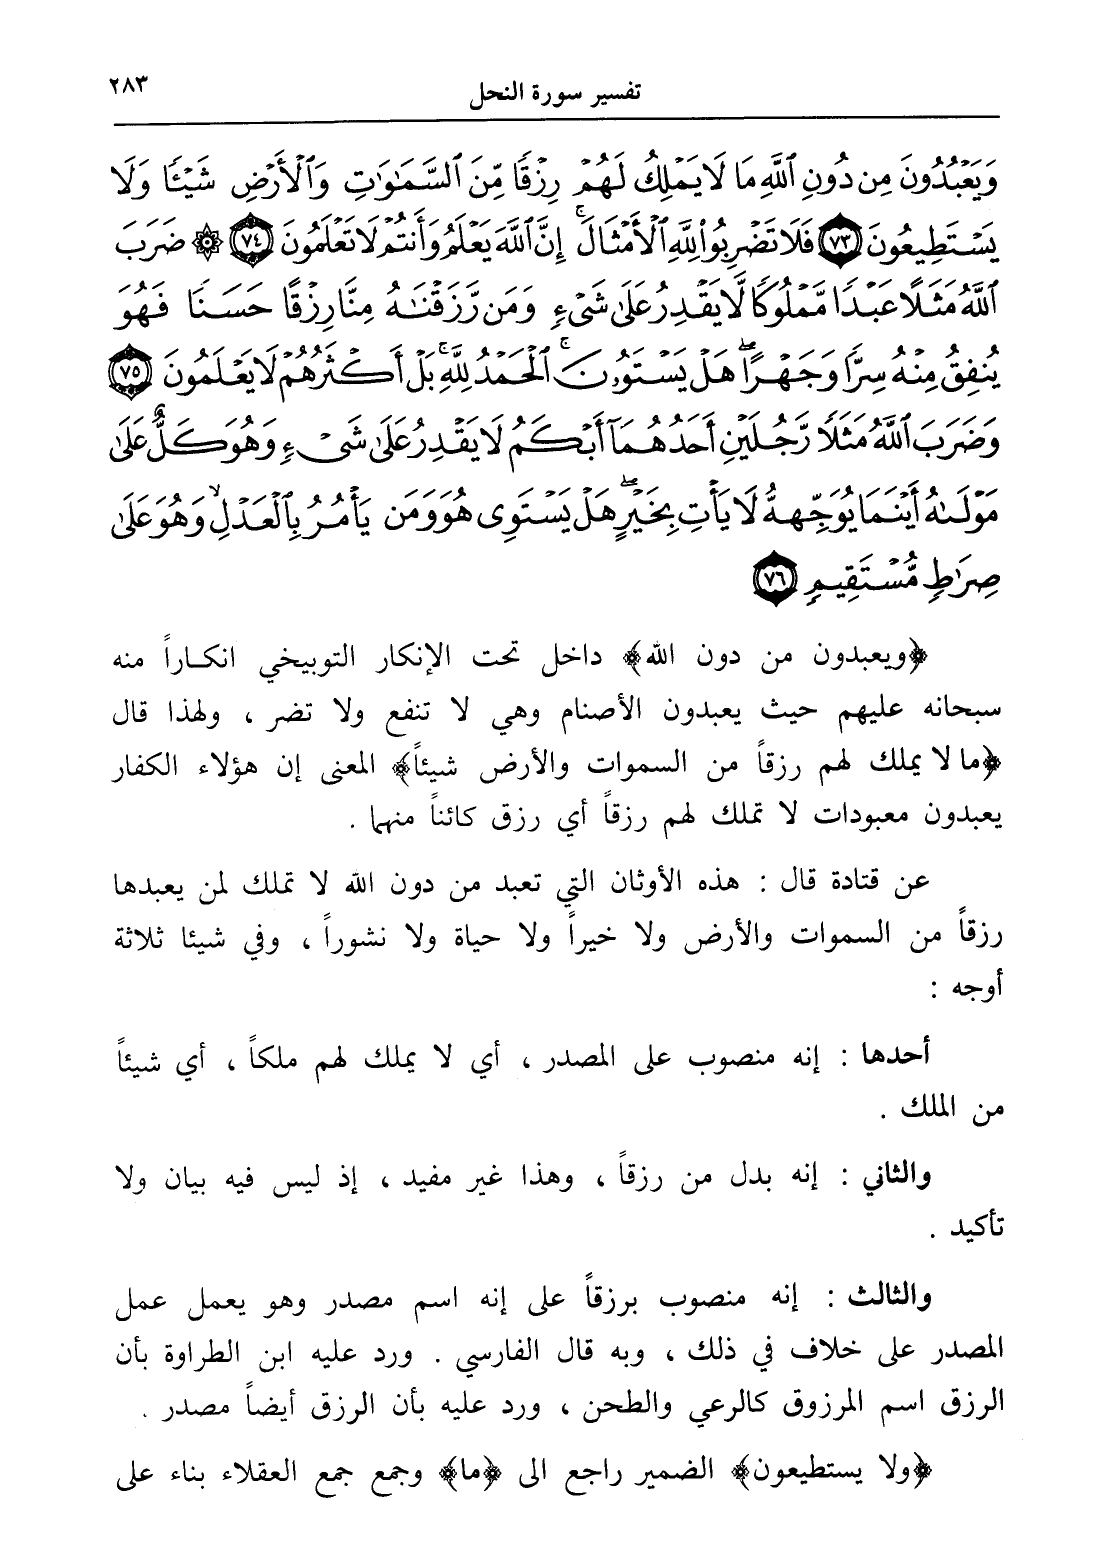 تفسير سورة النحل ٢٨٣
وَيَعْبُدُونَ مِن دُونِ ٱللَّهِ مَا لَا يَمْلِكُ لَهُمْ رِزْقًا مِّنَ ٱلسَّمَٰوَٰتِ وَٱلْأَرْضِ شَيْـًٔا وَلَا
يَسْتَطِيعُونَ ٧٣ فَلَا تَضْرِبُوا۟ لِلَّهِ ٱلْأَمْثَالَ ۚ إِنَّ ٱللَّهَ يَعْلَمُ وَأَنتُمْ لَا تَعْلَمُونَ ٧٤ ۞ ضَرَبَ
ٱللَّهُ مَثَلًا عَبْدًا مَّمْلُوكًا لَّا يَقْدِرُ عَلَىٰ شَىْءٍ وَمَن رَّزَقْنَٰهُ مِنَّا رِزْقًا حَسَنًا فَهُوَ
يُنفِقُ مِنْهُ سِرًّا وَجَهْرًا ۖ هَلْ يَسْتَوُۥنَ ۚ ٱلْحَمْدُ لِلَّهِ ۚ بَلْ أَكْثَرُهُمْ لَا يَعْلَمُونَ ٧٥
وَضَرَبَ ٱللَّهُ مَثَلًا رَّجُلَيْنِ أَحَدُهُمَآ أَبْكَمُ لَا يَقْدِرُ عَلَىٰ شَىْءٍ وَهُوَ كَلٌّ عَلَىٰ
مَوْلَىٰهُ أَيْنَمَا يُوَجِّههُّ لَا يَأْتِ بِخَيْرٍ ۖ هَلْ يَسْتَوِى هُوَ وَمَن يَأْمُرُ بِٱلْعَدْلِ ۙ وَهُوَ عَلَىٰ
صِرَٰطٍ مُّسْتَقِيمٍ ٧٦
﴿ويعبدون من دون الله﴾ داخل تحت الإنكار التوبيخي انكاراً منه
سبحانه عليهم حيث يعبدون الأصنام وهي لا تنفع ولا تضر ، ولهذا قال
﴿ما لا يملك لهم رزقاً من السموات والأرض شيئاً﴾ المعنى إن هؤلاء الكفار
يعبدون معبودات لا تملك لهم رزقاً أي رزق كائناً منهما .
عن قتادة قال : هذه الأوثان التي تعبد من دون الله لا تملك لمن يعبدها
رزقاً من السموات والأرض ولا خيراً ولا حياة ولا نشوراً ، وفي شيئا ثلاثة
أوجه :
أحدها : إنه منصوب على المصدر ، أي لا يملك لهم ملكاً ، أي شيئاً
من الملك .
والثاني : إنه بدل من رزقاً ، وهذا غير مفيد ، إذ ليس فيه بيان ولا
تأكيد .
والثالث : إنه منصوب برزقاً على إنه اسم مصدر وهو يعمل عمل
المصدر على خلاف في ذلك ، وبه قال الفارسي . ورد عليه ابن الطراوة بأن
الرزق اسم المرزوق كالرعي والطحن ، ورد عليه بأن الرزق أيضاً مصدر .
﴿ولا يستطيعون﴾ الضمير راجع الى ﴿ما﴾ وجمع جمع العقلاء بناء على